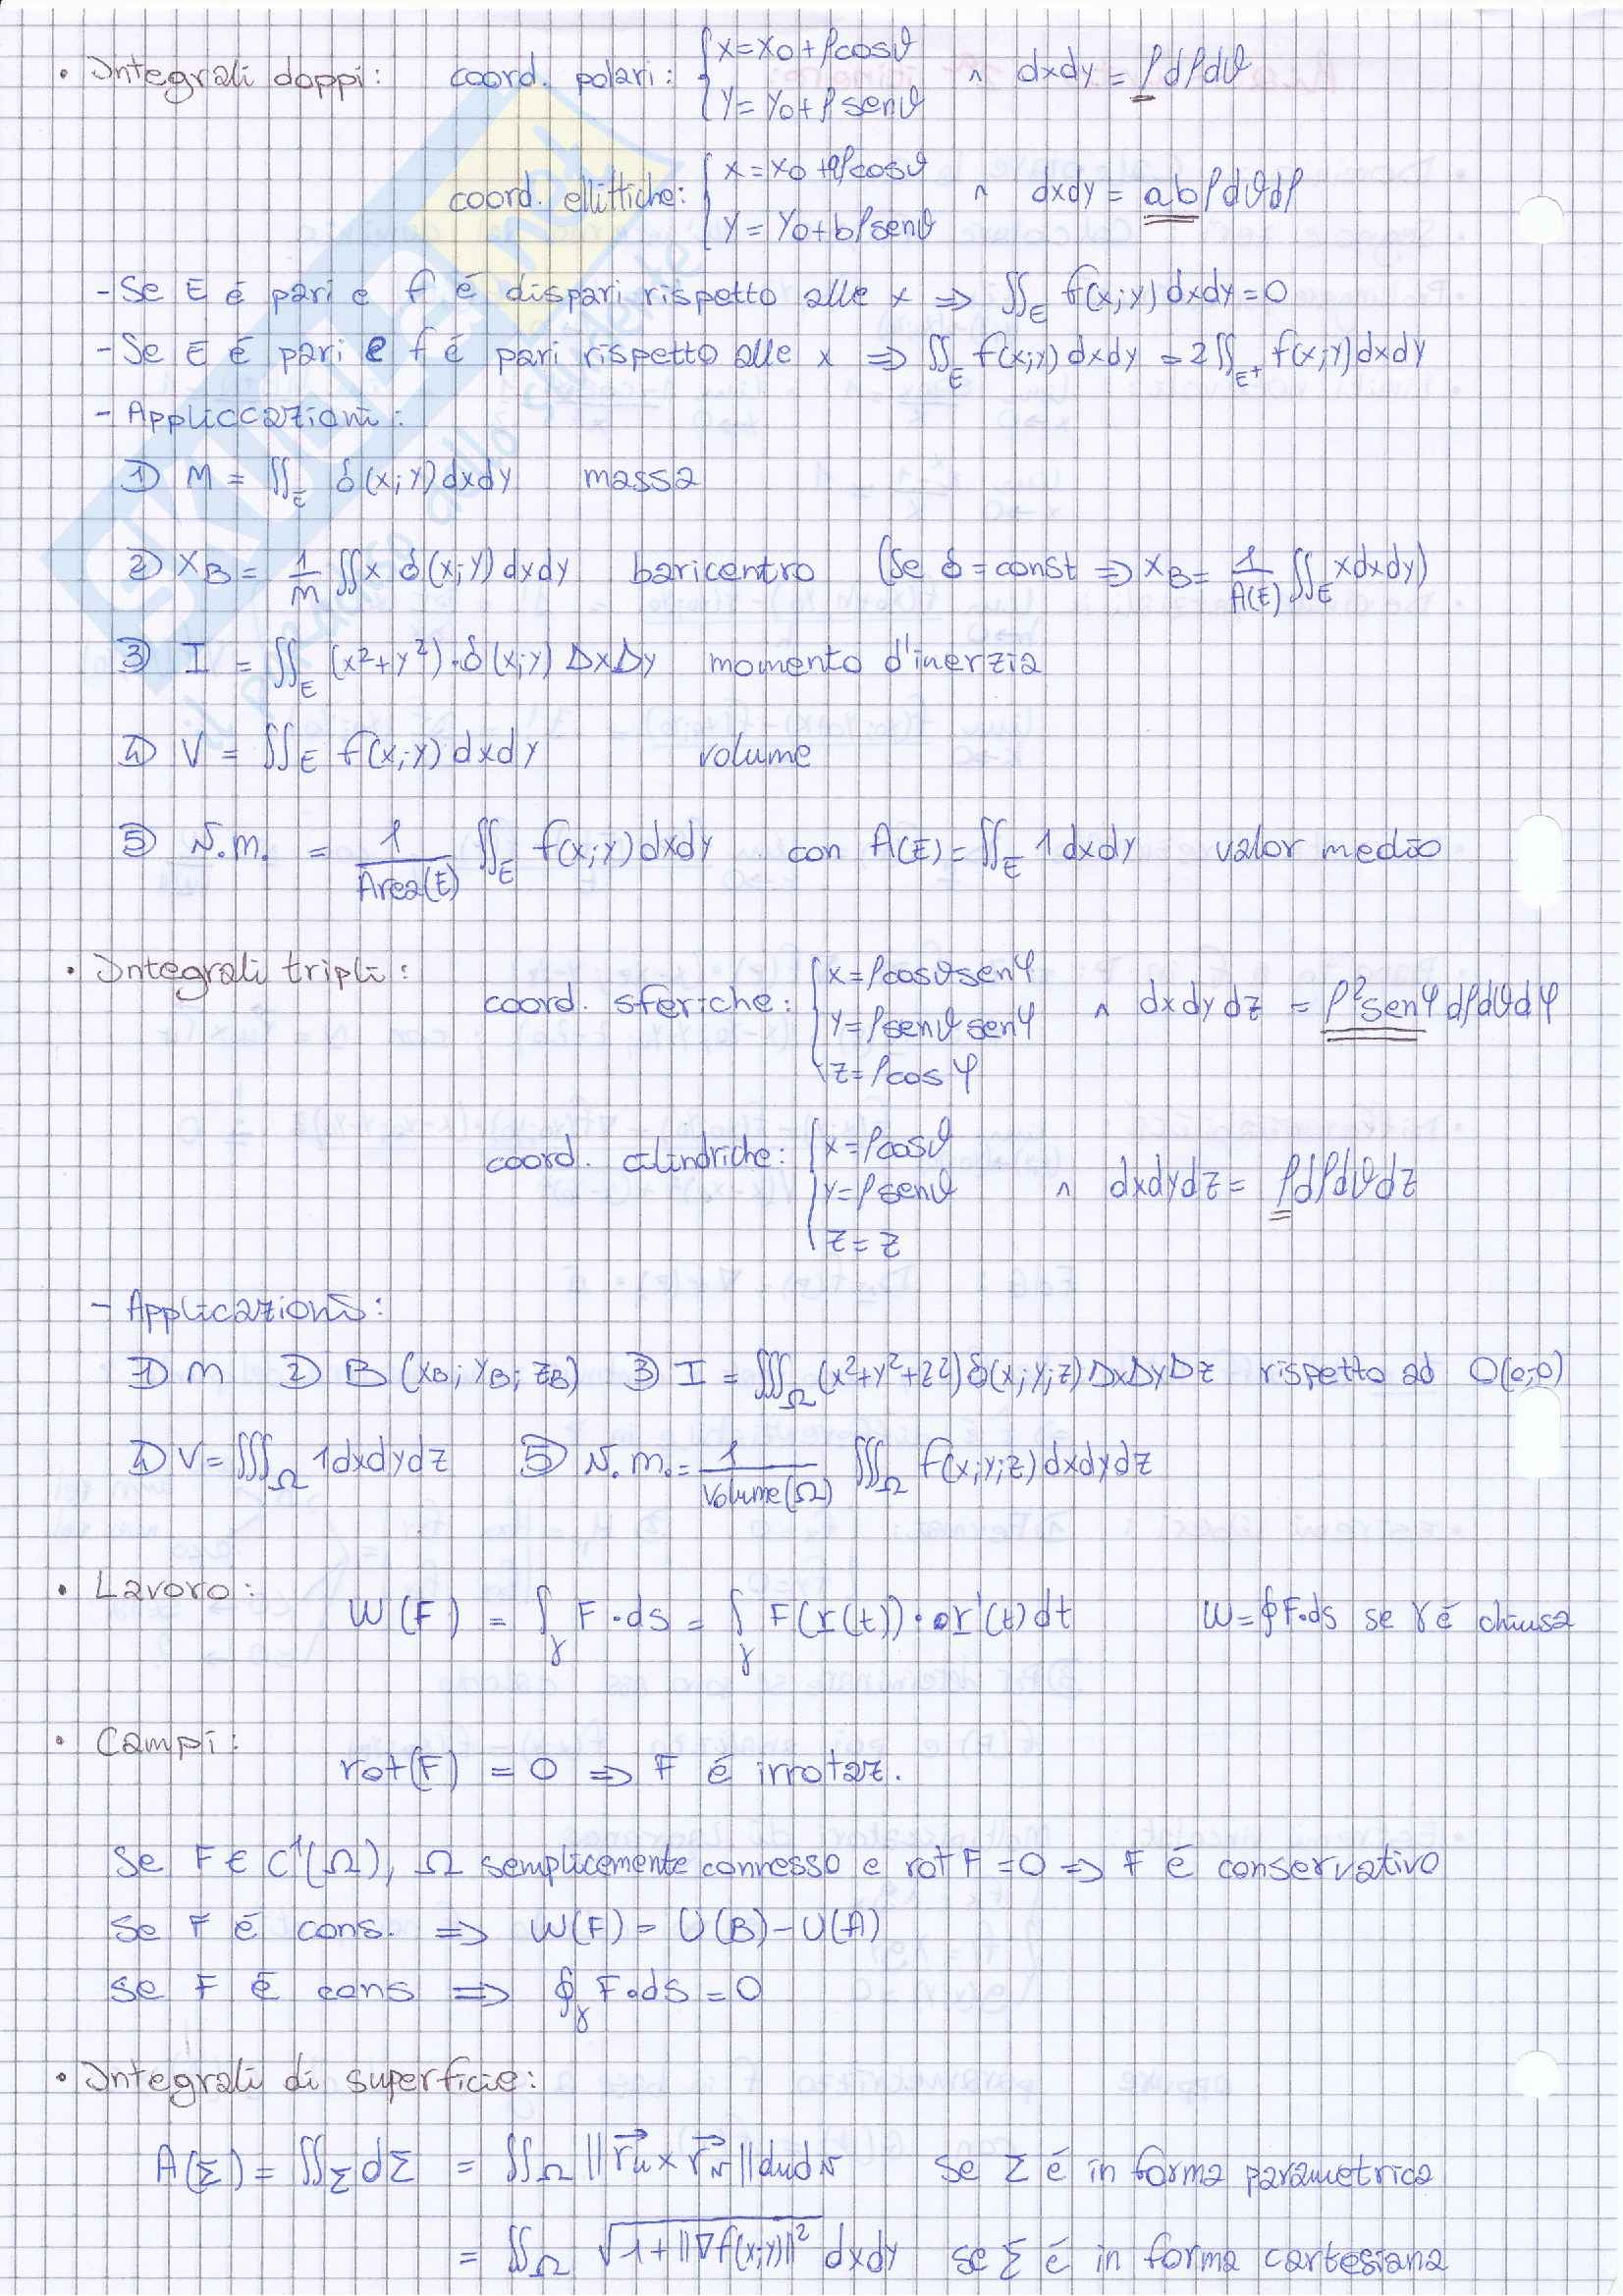 • Integrali doppi: coord. polari: { x = x0 + ρcosϑ ∧ dxdy = ρdρdϑ
{ y = y0 + ρsenϑ
coord. ellittiche: { x = x0 + aρcosϑ ∧ dxdy = abρdϑdρ
{ y = y0 + bρsenϑ
- Se E é pari e f é dispari rispetto alle x ⇒ ∬_E f(x;y)dxdy = 0
- Se E é pari e f é pari rispetto alle x ⇒ ∬_E f(x;y)dxdy = 2∬_E+ f(x;y)dxdy
- Appliccazioni:
1) M = ∬_E δ(x;y)dxdy massa
2) xB = 1/M ∬x δ(x;y)dxdy baricentro (Se δ = const ⇒ xB = 1/A(E) ∬_E xdxdy)
3) I = ∬_E (x²+y²)·δ(x;y)ΔxΔy momento d'inerzia
4) V = ∬_E f(x;y)dxdy volume
5) v.m. = 1/Area(E) ∬_E f(x;y)dxdy con A(E) = ∬_E 1dxdy valor medio
• Integrali tripli: coord. sferiche: { x = ρcosϑsenφ ∧ dxdydz = ρ²senφdρdϑdφ
{ y = ρsenϑsenφ
{ z = ρcosφ
coord. cilindriche: { x = ρcosϑ ∧ dxdydz = ρdρdϑdz
{ y = ρsenϑ
{ z = z
- Applicazioni:
1) M 2) B(xB; yB; zB) 3) I = ∭_Ω (x²+y²+z²)δ(x;y;z)ΔxΔyΔz rispetto ad O(0;0)
4) V = ∭_Ω 1dxdydz 5) v.m. = 1/Volume(Ω) ∭_Ω f(x;y;z)dxdydz
• Lavoro: W(F) = ∫_γ F·ds = ∫_γ F(r(t))·r'(t)dt W = ∮F·ds se γ é chiusa
• Campi: rot(F) = 0 ⇒ F é irrotaz.
Se F ∈ C¹(Ω), Ω semplicemente connesso e rot F = 0 ⇒ F é conservativo
Se F é cons. ⇒ W(F) = U(B) - U(A)
se F é cons ⇒ ∮_γ F·ds = 0
• Integrali di superficie:
A(Σ) = ∬_Σ dΣ = ∬_Ω ||r⃗u × r⃗v||dudv se Σ é in forma parametrica
= ∬_Ω √(1+||∇f(x;y)||²) dxdy se Σ é in forma cartesiana